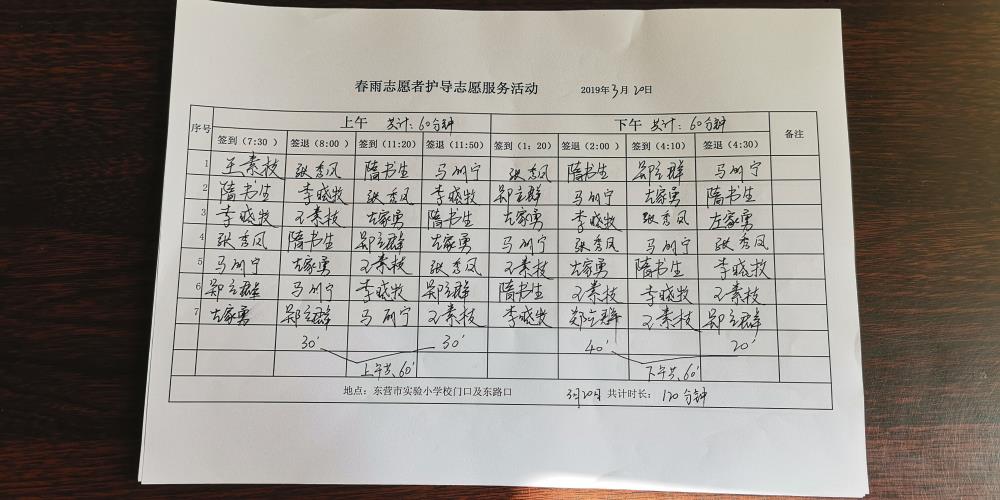 春雨志愿者护导志愿服务活动 2019年3月20日
序号 上午 共计:60分钟 下午 共计:60分钟 备注
签到(7:30) 签退(8:00) 签到(11:20) 签退(11:50) 签到(1:20) 签退(2:00) 签到(4:10) 签退(4:30)
1 王素枝 张秀凤 隋书生 马列宁 张秀凤 隋书生 郑立群 马列宁
2 隋书生 李晓牧 张秀凤 李晓牧 郑立群 马列宁 左家勇 隋书生
3 李晓牧 王素枝 左家勇 隋书生 左家勇 李晓牧 张秀凤 左家勇
4 张秀凤 隋书生 郑立群 左家勇 马列宁 张秀凤 马列宁 张秀凤
5 马列宁 左家勇 王素枝 张秀凤 王素枝 左家勇 隋书生 李晓牧
6 郑立群 马列宁 李晓牧 郑立群 隋书生 王素枝 李晓牧 王素枝
7 左家勇 郑立群 马列宁 王素枝 李晓牧 郑立群 王素枝 郑立群
30′ 30′ 40′ 20′
上午共60′ 下午共60′
地点:东营市实验小学校门口及东路口 3月20日共计时长:120分钟